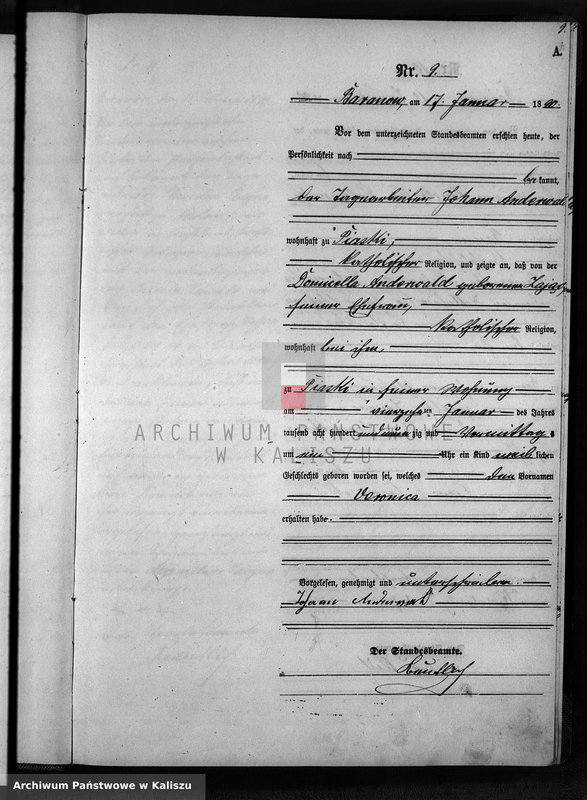 9.
A.
Nr. 9.
Baranow, am 17. Januar 1890.
Vor dem unterzeichneten Standesbeamten erschien heute, der
Persönlichkeit nach
bekannt,
der Tagearbeiter Johann Anderwald
wohnhaft zu Piaski,
katholischer Religion, und zeigte an, daß von der
Domicella Anderwald geborenen Zajac,
seiner Ehefrau,
katholischer Religion,
wohnhaft bei ihm,
zu Piaski in seiner Wohnung
am vierzehnten Januar des Jahres
tausend acht hundert und neunzig und Vormittags
um ein Uhr ein Kind weiblichen
Geschlechts geboren worden sei, welches den Vornamen
Veronica
erhalten habe.
Vorgelesen, genehmigt und unterschrieben.
Johann Anderwald
Der Standesbeamte.
ARCHIWUM PAŃSTWOWE
W KALISZU
Archiwum Państwowe w Kaliszu